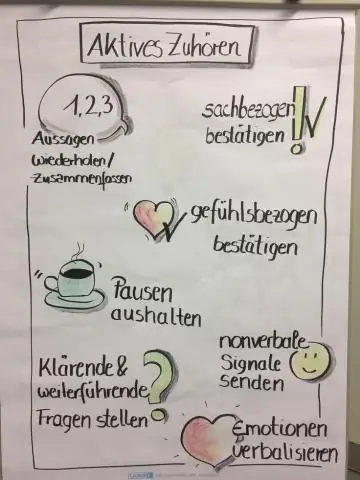 Aktives Zuhören
1,2,3
Aussagen
wiederholen/
zusammenfassen
sachbezogen
bestätigen
gefühlsbezogen
bestätigen
Pausen
aushalten
nonverbale
Signale
senden
Klärende &
weiterführende
Fragen stellen
?
Emotionen
verbalisieren